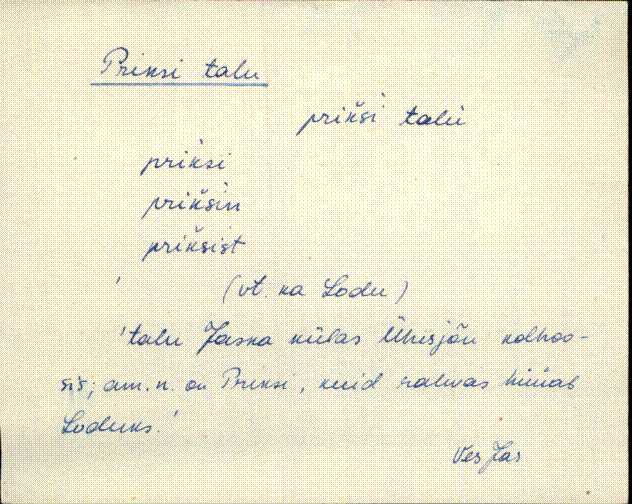 Priksi talu
prikši talu
prikši
prikšin
prikšist
(vt. ka Lodu)
'talu Jaska külas Ühisjõu kolhoo-
sis; am. n. on Priksi, kuid rahvas hüüab
Loduks.'
Ves Jas